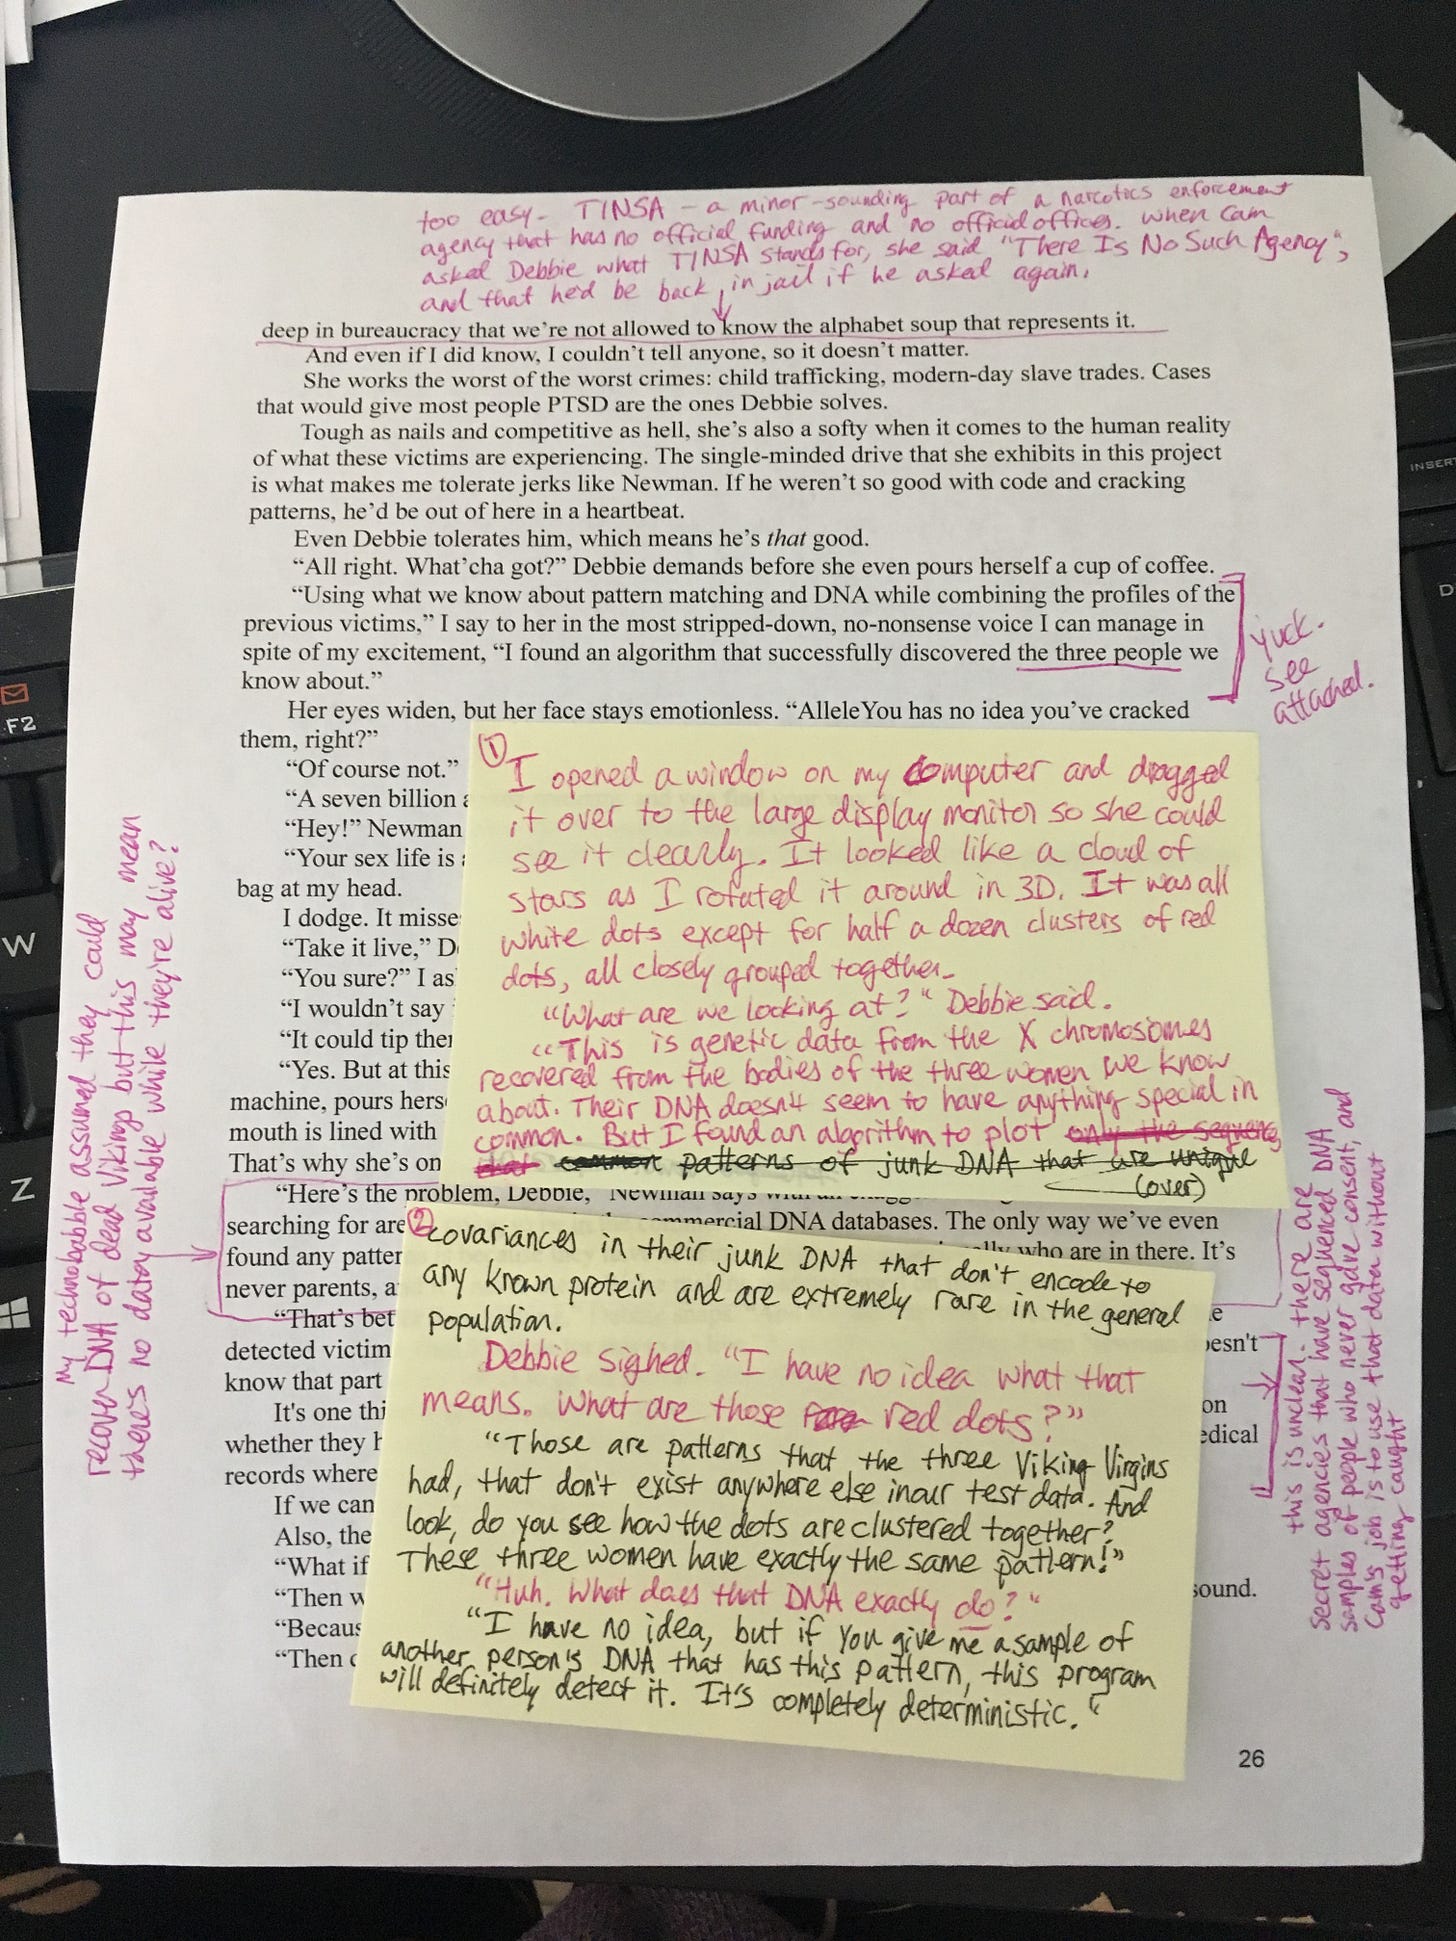 too easy- TINSA - a minor-sounding part of a narcotics enforcement
agency that has no official funding and no official offices. When Cam
asked Debbie what TINSA stands for, she said "There Is No Such Agency",
and that he'd be back in jail if he asked again.
deep in bureaucracy that we're not allowed to know the alphabet soup that represents it.
And even if I did know, I couldn't tell anyone, so it doesn't matter.
She works the worst of the worst crimes: child trafficking, modern-day slave trades. Cases
that would give most people PTSD are the ones Debbie solves.
Tough as nails and competitive as hell, she's also a softy when it comes to the human reality
of what these victims are experiencing. The single-minded drive that she exhibits in this project
is what makes me tolerate jerks like Newman. If he weren't so good with code and cracking
patterns, he'd be out of here in a heartbeat.
Even Debbie tolerates him, which means he's that good.
"All right. What'cha got?" Debbie demands before she even pours herself a cup of coffee.
"Using what we know about pattern matching and DNA while combining the profiles of the
previous victims," I say to her in the most stripped-down, no-nonsense voice I can manage in
spite of my excitement, "I found an algorithm that successfully discovered the three people we
know about."
yuck.
see
attached.
Her eyes widen, but her face stays emotionless. "AlleleYou has no idea you've cracked
them, right?"
"Of course not."
"A seven billion
"Hey!" Newman
"Your sex life is
bag at my head.
I dodge. It misse
"Take it live," D
"You sure?" I as
"I wouldn't say
"It could tip the
"Yes. But at this
machine, pours hers
mouth is lined with
That's why she's on
"Here's the problem, Debbie," Newman says with an
searching for are commercial DNA databases. The only way we've even
found any patter who are in there. It's
never parents, a
"That's bet
detected victim oesn't
know that part on
It's one thi
whether they h edical
records where
If we can
Also, the
"What if sound.
"Then w
"Becaus
"Then
①
I opened a window on my computer and dragged
it over to the large display monitor so she could
see it clearly. It looked like a cloud of
stars as I rotated it around in 3D. It was all
white dots except for half a dozen clusters of red
dots, all closely grouped together.
"What are we looking at?" Debbie said.
"This is genetic data from the X chromosomes
recovered from the bodies of the three women we know
about. Their DNA doesn't seem to have anything special in
common. But I found an algorithm to plot only the sequences
that common patterns of junk DNA that are unique
(over)
②
covariances in their junk DNA that don't encode to
any known protein and are extremely rare in the general
population.
Debbie sighed. "I have no idea what that
means. What are those red dots?"
"Those are patterns that the three Viking Virgins
had, that don't exist anywhere else in our test data. And
look, do you see how the dots are clustered together?
These three women have exactly the same pattern!"
"Huh. What does that DNA exactly do?"
"I have no idea, but if you give me a sample of
another person's DNA that has this pattern, this program
will definitely detect it. It's completely deterministic."
My technobabble assumed they could
recover DNA of dead Vikings but this may mean
there's no data available while they're alive?
this is unclear. there are
secret agencies that have sequenced DNA
samples of people who never gave consent, and
Cam's job is to use that data without
getting caught
26
F2
W
Z
INSERT
D